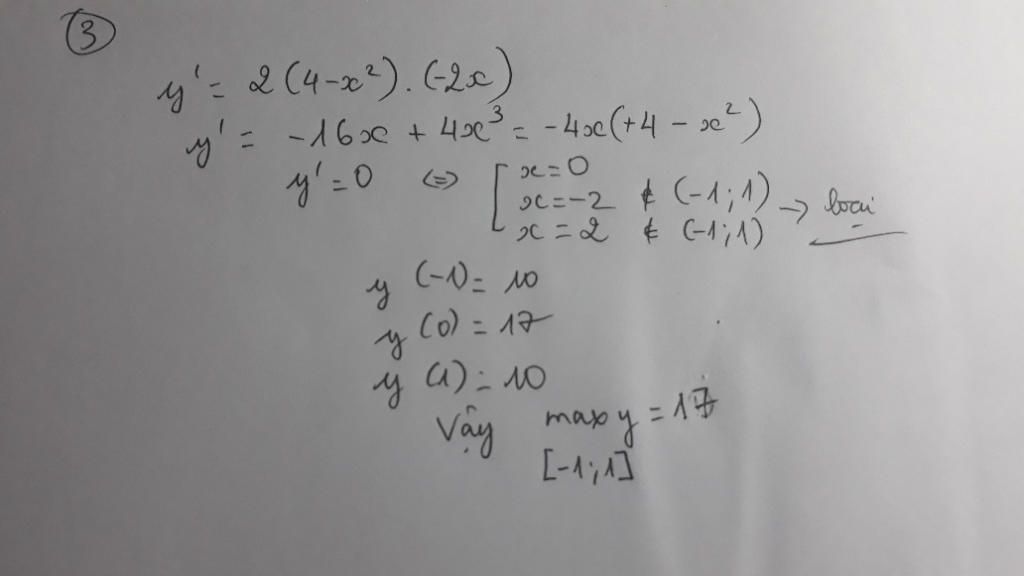 3
y' = 2(4-x²).(-2x)
y' = -16x + 4x³ = -4x(+4 - x²)
y' = 0 ⇔ [ x = 0
x = -2 ∉ (-1;1)
x = 2 ∉ (-1;1) → loại
y(-1) = 10
y(0) = 17
y(1) = 10
Vậy max y = 17
[-1;1]